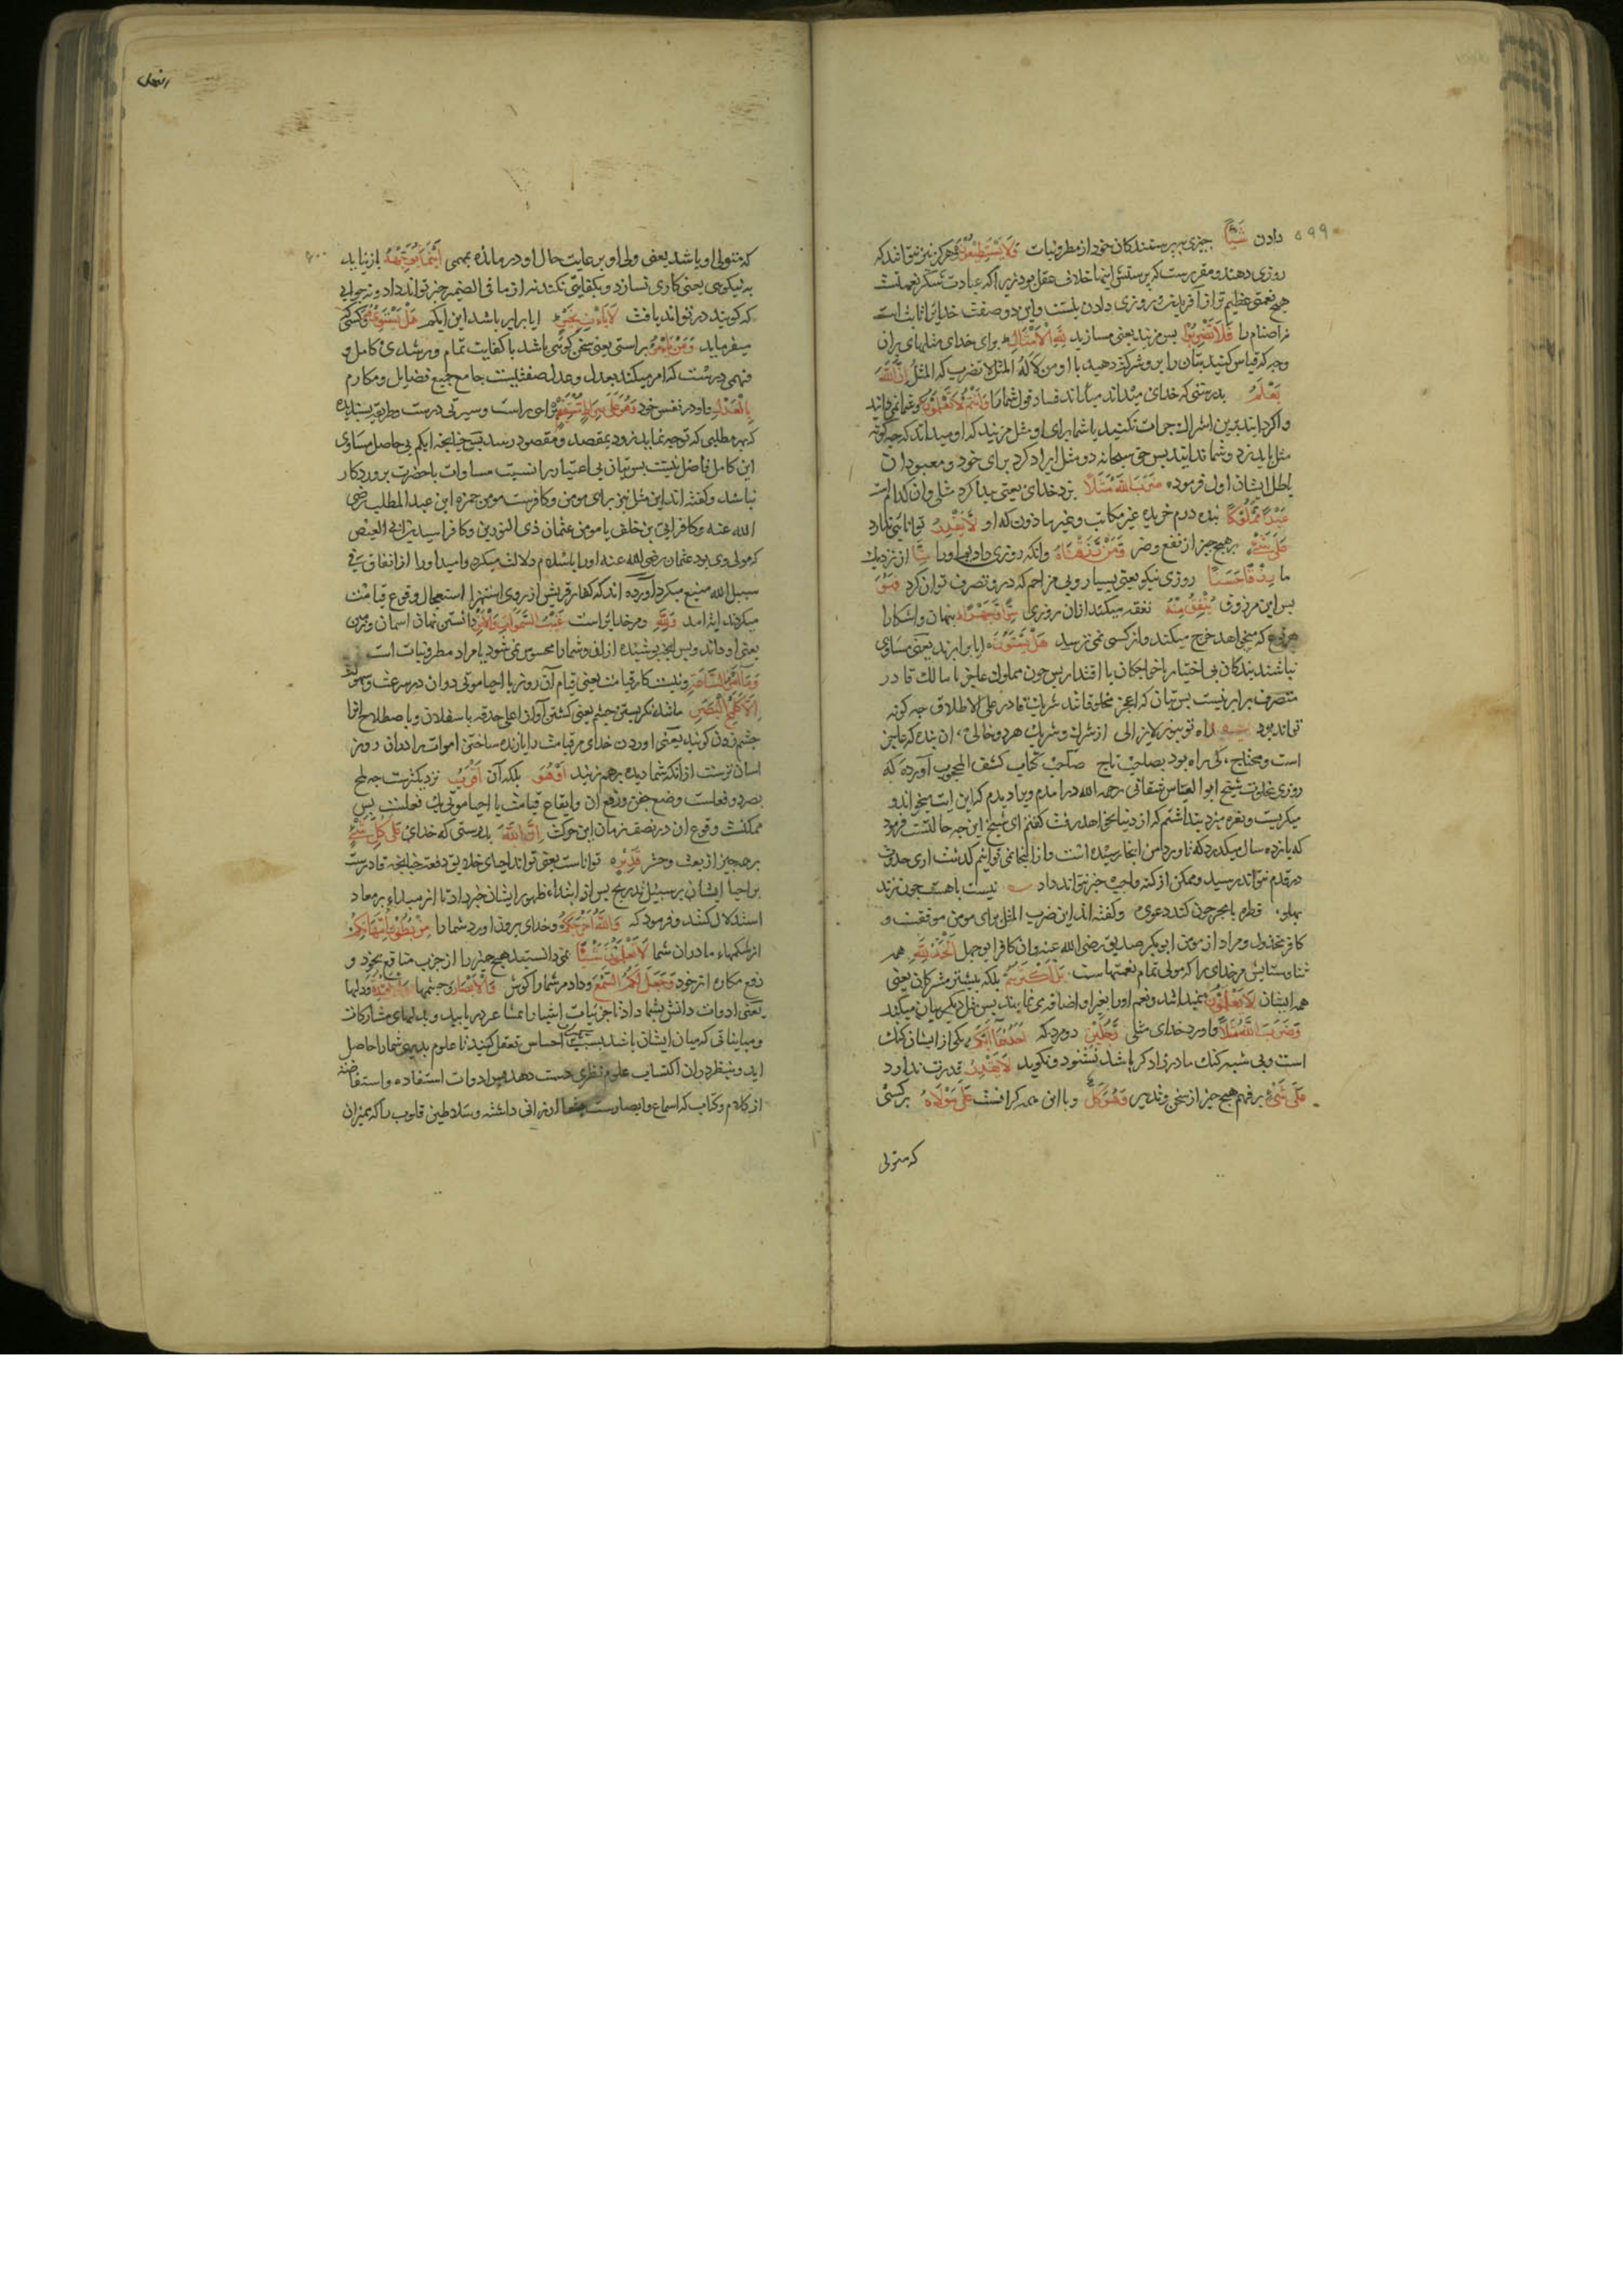 ۵۹۹
دادن شَيْئًا چیزی بپرستندکان خود از مطروبات وَلَا يَسْتَطِيعُونَ وهرکز نیز نتوانند که
روزی دهند ومقررست که پرستش اینها خلاف عقل بود زیرا که عبادت شکر نعمتست
هیچ نعمتی عظیم تر از آفریدن و روزی دادن نیست واین دو صفت خدایرا ثابت است
نه اصنام را فَلَا تَضْرِبُوا پس مزنید یعنی مسازید لِلَّهِ الْأَمْثَالَ برای خدای مثلهای بران
وجه که قیاس کنید بتان را برو وشرکت دهید با او إِنَّ اللَّهَ
يَعْلَمُ بدرستی که خدای میداند فساد قول شما را وَأَنْتُمْ لَا تَعْلَمُونَ وشما نمیدانید
واکر دانید برین اشراک جرات نکنید یا شما برای او مثل مزنید که او میداند که چه کونه
مثل باید زد وشما ندانید پس حق سبحانه دو مثل ایراد کرد برای خود ومعبودان
باطل ایشان اول فرموده ضَرَبَ اللَّهُ مَثَلًا بزد خدای یعنی پیدا کرد مثلی وان کدامست
عَبْدًا مَمْلُوكًا بنده درم خریده غیر مکاتب وغیر ماذون که او لَا يَقْدِرُ توانایی ندارد
عَلَى شَيْءٍ بر هیچ چیز از نفع وضر وَمَنْ رَزَقْنَاهُ وانکه روزی دادیم او را مِنَّا از نزدیک
ما رِزْقًا حَسَنًا روزی نیکو یعنی بسیار وبی مزاحم که درو تصرف توان کرد فَهُوَ
پس این مرزوق يُنْفِقُ مِنْهُ نفقه میکند ازان روزی سِرًّا وَجَهْرًا پنهان واشکارا
که میخواهد خرج میکند واز کسی نمی ترسد هَلْ يَسْتَوُونَ ایا برابرند یعنی مساوی
نباشند بندکان بی اختیار با خواجکان با اقتدار پس چون مملوک عاجز با مالک قادر
متصرف برابر نیست پس بتان که اعجز مخلوقاتند شریک قادر علی الاطلاق چه کونه
تواند بود
است ومحتاج کی راه بود بصاحب تاج صاحب کتاب کشف المحجوب آورده که
روزی بخلوت شیخ ابو العباس شقانی رحمه الله درامدم ویرا دیدم که این ایت میخواند و
میکریست ونعره میزد پنداشتم که از دنیا بخواهد رفت کفتم ای شیخ این چه حالتست فرمود
که یازده سال میکذرد که تا ورد من اینجا رسیده است واز اینجا نمی توانم کذشت اری حدوث
در قدم نتواند رسید وممکن از کنه واجب خبر نتواند داد نیست با هست چون زند
پهلو قطره با بحر چون کند دعوی وکفته اند این ضرب المثل برای مومن موفقست و
کافر مخذول ومراد از مومن ابوبکر صدیق رضی الله عنه وان کافر ابو جهل الْحَمْدُ لِلَّهِ همه
ثنا وستایش مر خدای را که مولی تمام نعمتهاست بَلْ أَكْثَرُهُمْ بلکه بیشتر مشرکان یعنی
همه ایشان لَا يَعْلَمُونَ نمیدانند ونعم او را بغیر او اضافه می نمایند پس مثل دیکر بیان میکند
وَضَرَبَ اللَّهُ مَثَلًا واورد خدای مثلی رَجُلَيْنِ دو مرد که أَحَدُهُمَا أَبْكَمُ یکی از ایشان کنک
است وبی شبهه کنک مادر زاد کر باشد نشنود ونکوید لَا يَقْدِرُ قدرت ندارد
عَلَى شَيْءٍ بر فهم هیچ چیز از سخن وتدبیر وَهُوَ كَلٌّ وبا این همه کرانست عَلَى مَوْلَاهُ بر کسی
که متولی
النحل
۶۰۰
که متولی او باشد یعنی ولی او برعایت حال او درمانده بهمی أَيْنَمَا يُوَجِّهْهُ باز نیاید
به نیکویی یعنی کاری نسازد وبکفایتی نکند نه از ما فی الضمیر خبر تواند داد ونه جوابی
که کویند در تواند یافت لَا يَأْتِ بِخَيْرٍ ایا برابر باشد این ابکم هَلْ يَسْتَوِي هُوَ وکسی که
میفرماید وَمَنْ يَأْمُرُ براستی یعنی سخن کوئی باشد با کفایت تمام ورشدی کامل و
فهمی درست که امر میکند بعدل وعدل صفتیست جامع جمیع فضایل ومکارم
بِالْعَدْلِ واو در نفس خود وَهُوَ عَلَى صِرَاطٍ مُسْتَقِيمٍ بر راهی راست وسیرتی درست وطریقه پسندیده
که بهر مطلبی که توجه نماید زود بمقصد ومقصود رسد پس چنانچه ابکم بی حاصل مساوی
این کامل فاضل نیست پس بتان بی اعتبار را نسبت مساوات با حضرت پروردکار
نباشد وکفته اند این مثل نیز برای مومن وکافرست مومن حمزه ابن عبد المطلب رضی
الله عنه وکافر ابی بن خلف یا مومن عثمان ذی النورین وکافر اسید بن ابی العیص
که مولی وی بود عثمان رضی الله عنه او را باسلام دلالت میکرد واسید او را از انفاق فی
سبیل الله منع میکرد آورده اند که کفار قریش از روی استهزا استعجال وقوع قیامت
میکردند ایت امد وَلِلَّهِ ومر خدایراست غَيْبُ السَّمَوَاتِ وَالْأَرْضِ دانستن نهان اسمان وزمین
یعنی او داند وبس انچه پوشیده از خلق وشما را محسوس نمی شود یا مراد مطروبات است
وَمَا أَمْرُ السَّاعَةِ ونیست کار قیامت یعنی قیام آن روز یا احیا موتی دران در سرعت وسهولت
إِلَّا كَلَمْحِ الْبَصَرِ مانند نکریستن چشم یعنی کشتن آن از اعلی حدقه باسفل ان وباصطلاح انرا
چشم زدن کویند یعنی اوردن خدای مر قیامت را یا زنده ساختن اموات را دران روز
اسان ترست ازانکه شما دیده برهم زنید أَوْ هُوَ بلکه آن أَقْرَبُ نزدیکترست چه لمح
بصر دو فعلست وضع جفن ورفع ان وایقاع قیامت یا احیا موتی یک فعلست پس
ممکنست وقوع ان در نصف زمان این حرکت إِنَّ اللَّهَ بدرستی که خدای عَلَى كُلِّ شَيْءٍ
بر همه چیز از بعث وحشر قَدِيرٌ تواناست یعنی تواند احیای خلایق دفعه چنانچه قادرست
بر احیا ایشان بر سبیل تدریج پس از ابتداء ظهور ایشان خبر داد تا از مبداء بر معاد
استدلال کنند وفرمود که وَاللَّهُ أَخْرَجَكُمْ وخدای بیرون اورد شما را مِنْ بُطُونِ أُمَّهَاتِكُمْ
از شکمهاء مادران شما لَا تَعْلَمُونَ شَيْئًا نمی دانستید هیچ چیز را از جذب منافع بخود و
دفع مکاره از خود وَجَعَلَ لَكُمُ السَّمْعَ وداد مر شما را کوش وَالْأَبْصَارَ وچشمها وَالْأَفْئِدَةَ ودلها
یعنی ادوات دانش بشما داد تا جزئیات اشیا را بمشاعر دریابید وبدلهای مشارکات
ومبایناتی که میان ایشان باشد بسبب احساس تعقل کنید تا علوم بدیهی شما را حاصل
اید وبنظر دران اکتساب علوم نظری دست دهد پس ادوات استفاده واستفاضه
از کلام وکتاب که اسماع وابصارست ارزانی داشته وسلاطین قلوب را که بمیزان